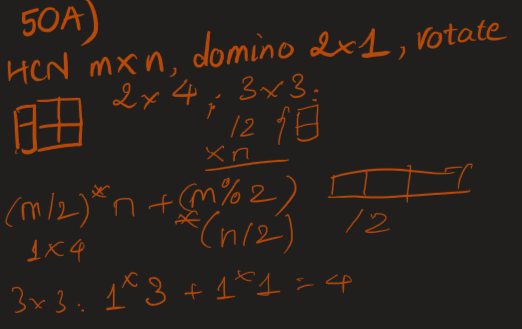 50A)
HCN mxn, domino 2x1, rotate
2x4; 3x3:
12
xn
(m/2)*n + (m%2)
*(n/2)
12
1x4
3x3: 1x3 + 1x1 = 4